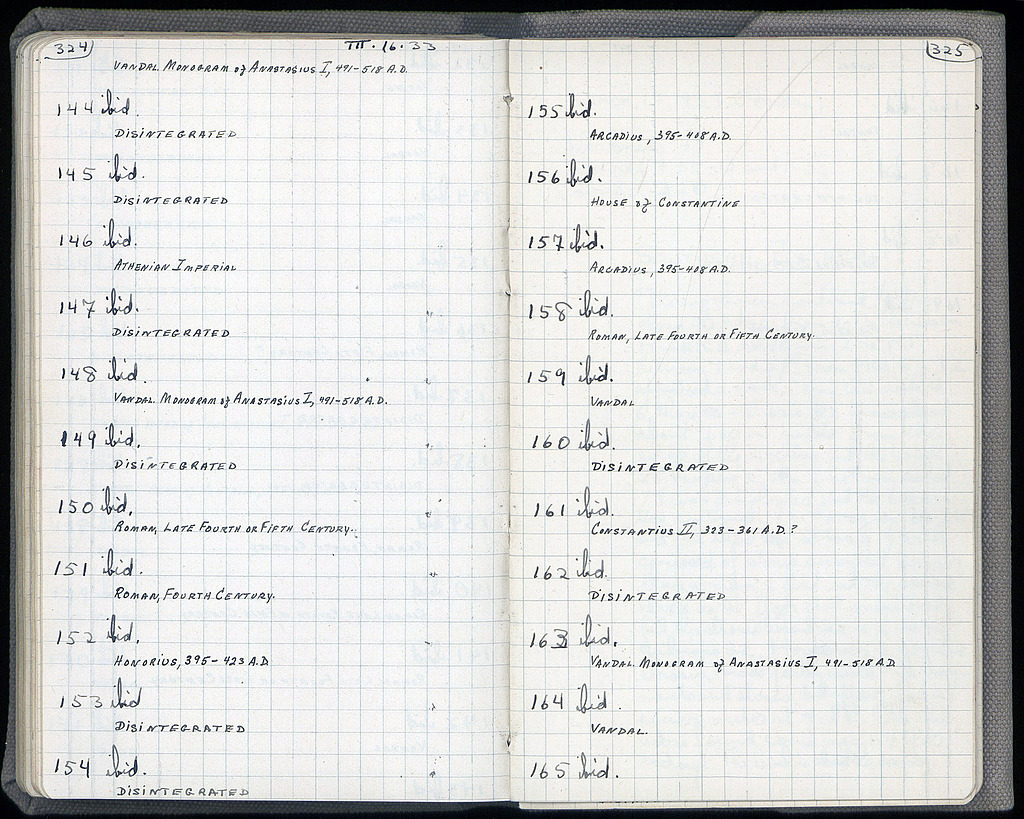 324
III. 16. 33
VANDAL MONOGRAM of ANASTASIUS I, 491-518 A.D.
144 ibid.
DISINTEGRATED
145 ibid.
DISINTEGRATED
146 ibid.
ATHENIAN IMPERIAL
147 ibid.
DISINTEGRATED
148 ibid.
VANDAL MONOGRAM of ANASTASIUS I, 491-518 A.D.
149 ibid.
DISINTEGRATED
150 ibid.
ROMAN, LATE FOURTH OR FIFTH CENTURY.
151 ibid.
ROMAN, FOURTH CENTURY.
152 ibid.
HONORIUS, 395-423 A.D
153 ibid
DISINTEGRATED
154 ibid.
DISINTEGRATED
325
155 ibid.
ARCADIUS, 395-408 A.D.
156 ibid.
HOUSE of CONSTANTINE
157 ibid.
ARCADIUS, 395-408 A.D.
158 ibid.
ROMAN, LATE FOURTH OR FIFTH CENTURY.
159 ibid.
VANDAL
160 ibid.
DISINTEGRATED
161 ibid.
CONSTANTIUS II, 323-361 A.D.?
162 ibid.
DISINTEGRATED
163 ibid.
VANDAL MONOGRAM of ANASTASIUS I, 491-518 A.D
164 ibid.
VANDAL.
165 ibid.